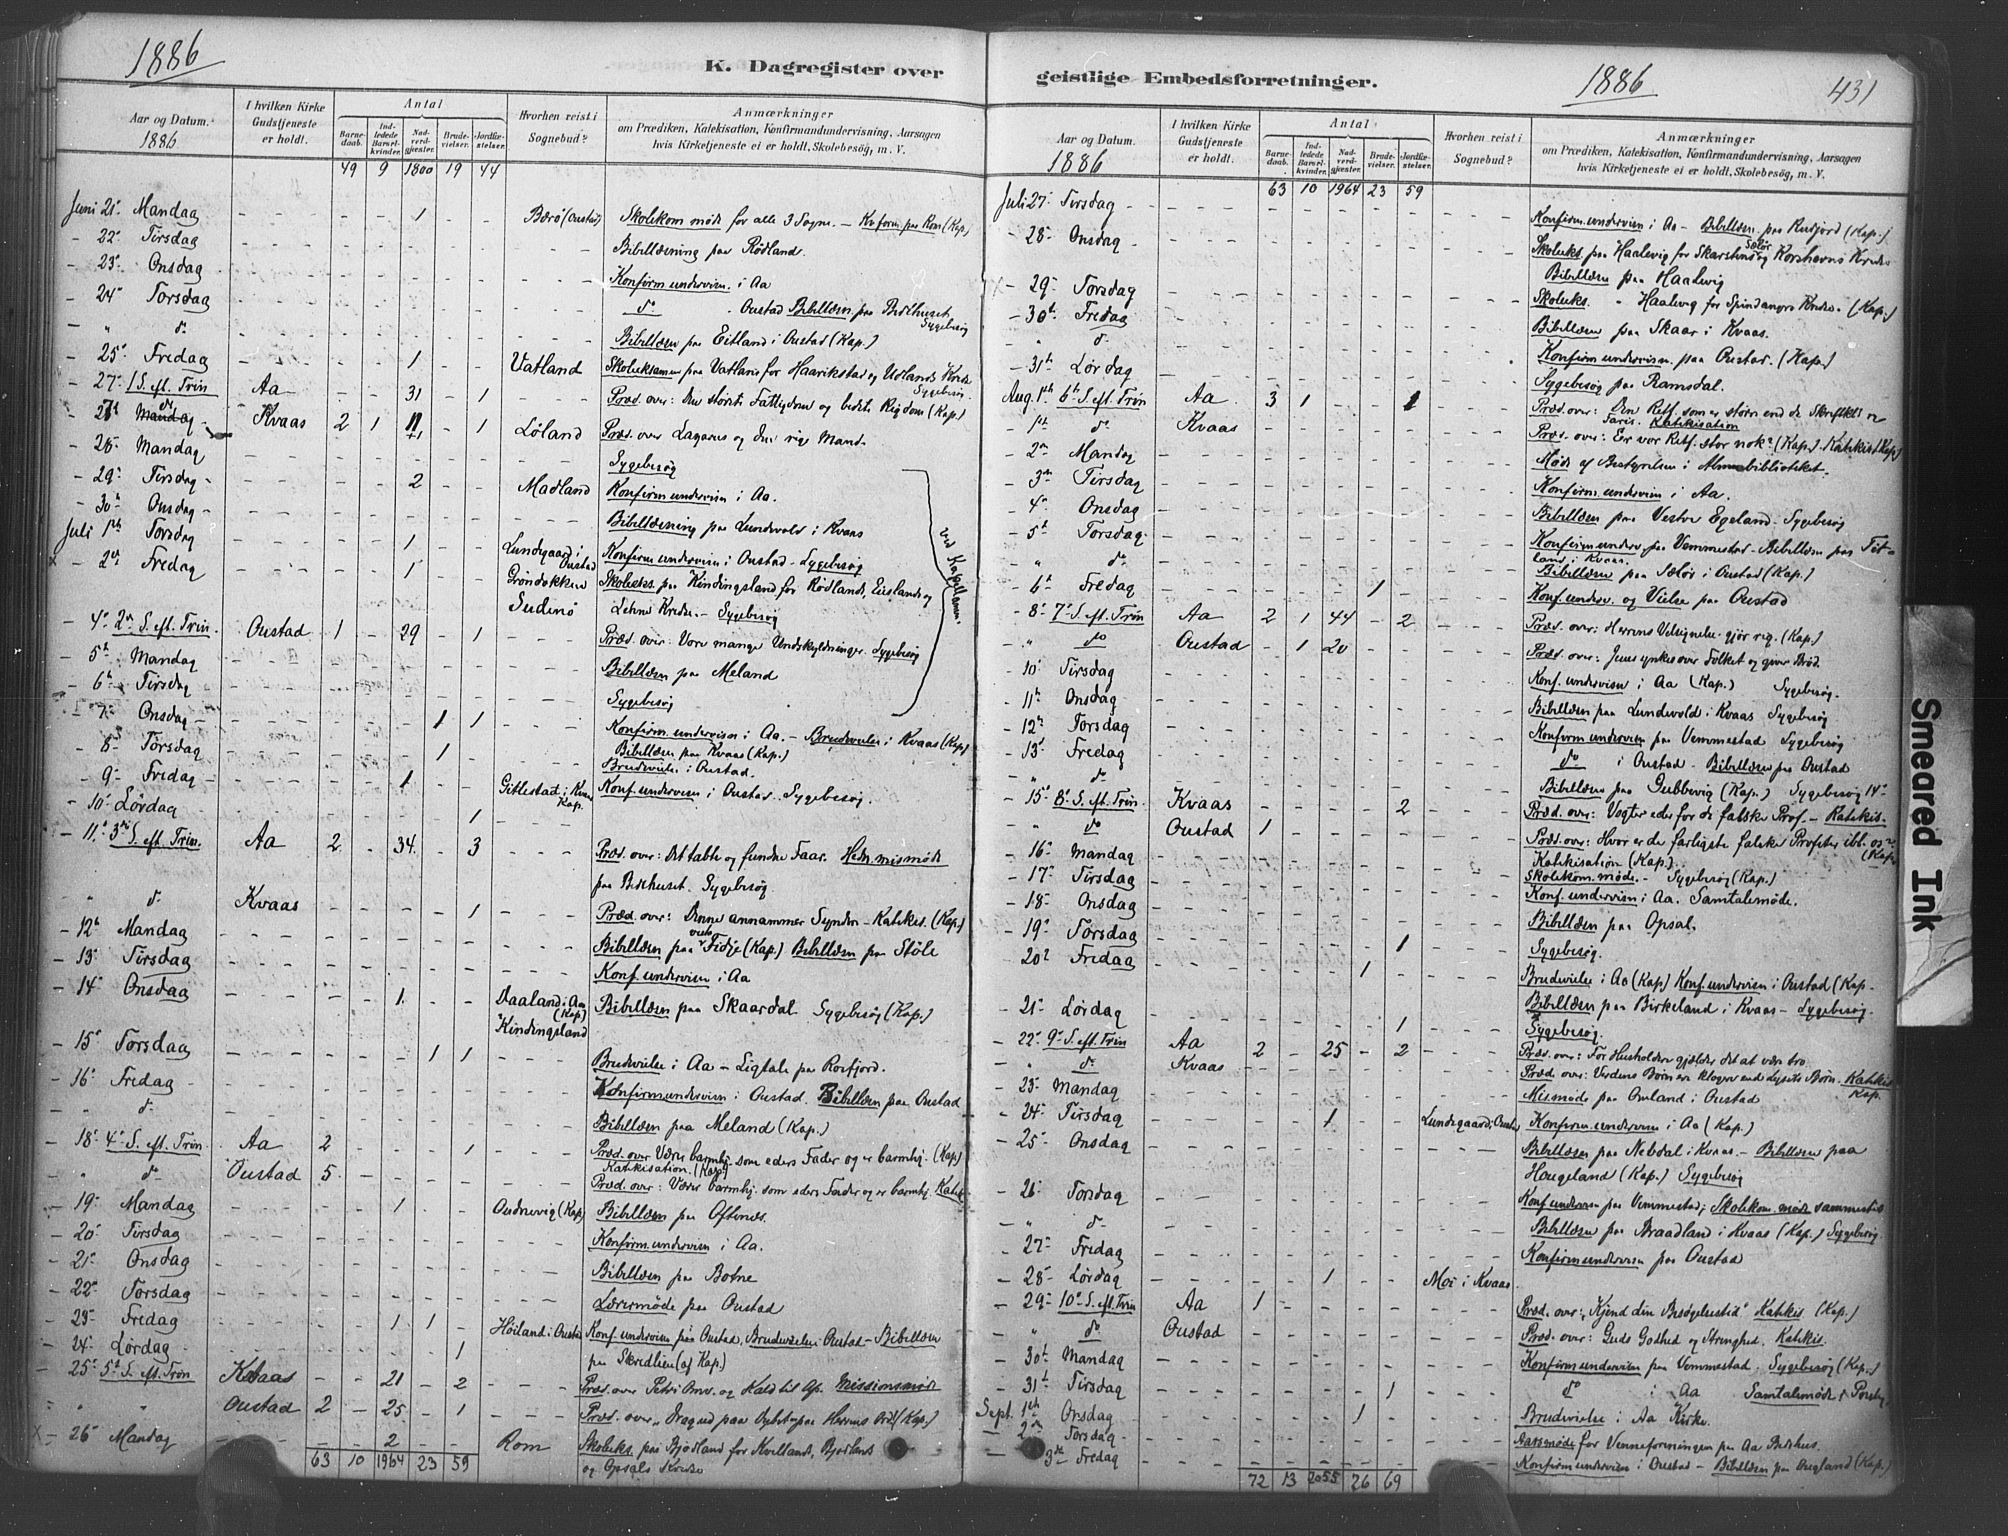 1886
K. Dagregister over
Aar og Datum.
1886
I hvilken Kirke
Gudstjeneste
er holdt.
Antal
Barne-
daab.
Ind-
ledede
Barsel-
kvinder.
Nad-
verd-
gjæster.
Brude-
vielser.
Jordfæ-
stelser.
Hvorhen reist i
Sognebud?
Anmærkninger
om Prædiken, Katekisation, Konfirmandundervisning, Aarsagen
hvis Kirketjeneste ei er holdt, Skolebesøg, m. V.
49 9 1800 19 44
Juni 21 Mandag - - 1 - - Skolekom møde for alle 3 Sogne. - (Kap)
- 22 Tirsdag - - - - - Bibellæsning paa Rødland.
- 23 Onsdag - - - - - Konfirm.undervisn. i Aa
- 24 Torsdag - - - - - do Oustad Bibellæsn paa Bedehuset
Sygebesøg
" do Bibellæsn paa Eitland i Oustad (Kap.)
- 25 Fredag - - 1 - - Vatland Skoleksamen paa Vatland for Haarikstad og Udlands Kreds
- 27 1 S. eft. Trin Aa - - 31 - 1 Præd. over: Den største Fattigdom og bedste Rigdom (Kap.) Sygebesøg
do Kvaas 2 1 11 - - Løland Præd. over Lazarus og den rige Mand.
- 28 Mandag - - - - - Sygebesøg
- 29 Tirsdag - - 2 - - Madland Konfirm undervisn i Aa.
- 30 Onsdag - - - - - Bibellæsning paa Lundevold i Kvaas
Juli 1 Torsdag - - 1 - - Lundegaard i Oustad Konfirm undervisn i Oustad. Sygebesøg
- 2 Fredag - - 1 - - Skoleks. paa Kindingsland for Rødlands, Eitslands og
Lehne Kredse. - Sygebesøg
ved Kapellanen.
- 4 2 S. eft. Trin. Oustad 1 - 29 - 1 Præd. over: Vore mange Undskyldninger. Sygebesøg
- 5 Mandag - - - - - Bibellæsn paa Meland
- 6 Tirsdag - - - - - Sygebesøg
- 7 Onsdag - - - 1 1 Konfirm.undervisn i Aa. - Brudevielse i Kvaas (Kap)
- 8 Torsdag - - - 1 - Bibellæsn paa Kvaas (Kap.)
Brudevielse i Oustad.
- 9 Fredag - - 1 - - Gitlestad i Kvaas
Kap. Konf.undervisn i Oustad. Sygebesøg.
- 10 Lørdag - - - - 1
- 11 3 S. eft. Trin. Aa 2 - 34 - 3 Præd. over: Det tabte og fundne Faar. Hednmismøde
paa Bedehuset. Sygebesøg
" do Kvaas - - - - 1 Præd. over: Denne annammer Syndere - Katekis. (Kap)
- 12 Mandag - - - - - Bibellæsn paa Fidje (Kap.) Bibellæsn paa Støle
- 13 Tirsdag - - - - - Konf.undervisn i Aa
- 14 Onsdag - - 1 - - Daaland i Aa
(Kap)
Kindingsland Bibellæsn paa Skaardal Sygebesøg (Kap.)
- 15 Torsdag - - - 1 1 Brudevielse i Aa - Ligtale paa Rosfjord.
- 16 Fredag - - - - - Konfirmundervisn i Oustad. Bibellæsn paa Oustad
" do Bibellæsn paa Meland (Kap.)
- 18 4 S. eft. Trin. Aa 2 - - - 1 Præd. over Værer barmhj. som eders Fader og er barmhj. (Kap)
Katekisation. (Kap)
" do Oustad 5 - - - - Præd. over: Værer barmhj. som eders Fader og er barmhj. Katek
- 19 Mandag - - 1 - - Oudnevig (Kap) Bibellæsn paa Oftenæs.
- 20 Tirsdag - - - - - Konfirm.undervisn i Aa.
- 21 Onsdag - - - - - Bibellæsn paa Botne
- 22 Torsdag - - - - - Lærermøde paa Oustad
- 23 Fredag - - 1 1 - Høiland i Oustad Konf.undervisn paa Oustad. Brudevielse i Oustad - Bibellæsn
paa Skredlien (af Kap.)
- 24 Lørdag - - - - 1
- 25 5 S. eft. Trin Kvaas - - 21 - 2 Præd. over Petri Omv. og Kald til Ap. Missionsmøde
" " Oustad 2 - 25 - 1
- 26 Mandag - - 2 - - Rom Skoleks. paa Bjødland for Kvellands, Bjødlands
og Opsals Kredse
63 10 1964 23 59
geistlige Embedsforretninger.
1886
431
Aar og Datum.
1886
I hvilken Kirke
Gudstjeneste
er holdt.
Antal
Barne-
daab.
Ind-
ledede
Barsel-
kvinder.
Nad-
verd-
gjæster.
Brude-
vielser.
Jordfæ-
stelser.
Hvorhen reist i
Sognebud?
Anmærkninger
om Prædiken, Katekisation, Konfirmandundervisning, Aarsagen
hvis Kirketjeneste ei er holdt, Skolebesøg, m. V.
63 10 1964 23 59
Juli 27 Tirsdag - Konfirm.undervisn i Aa - Bibellæsn paa (Kap.)
28 Onsdag - Skoleks. paa Haalevig for Korshavns Kredse
Bibellæsn paa Haalevig
- 29 Torsdag - Skoleks. " Haalevig for Spindangers Kreds. (Kap.)
- 30 Fredag - Bibellæsn paa Skaar i Kvaas.
" do Konfirm undervisn. paa Oustad. (Kap.)
- 31 Lørdag Sygebesøg paa Ramsdal.
Aug. 1 6 S. eft. Trin Aa 3 1 - - 1 Præd. over: Den Retf. som er større end de Skriftkl. og
Faris. Katekisation
- 1 Kvaas Præd. over: Er vor Retf. stor nok? (Kap.) Katekist. (Kap)
- 2 Mandag Møde af Bestyrelsen i Almuebibliotheket.
- 3 Tirsdag Konfirm undervisn i Aa.
- 4 Onsdag Bibellæsn paa Vestre Egeland. Sygebesøg
- 5 Torsdag Konfirm underv. paa Vemmestad - Bibellæsn paa Tit-
land i Kvaas.
" do Bibellæsn paa Sælør i Oustad (Kap.)
- 6 Fredag - - - 1 - Konf.underv. og Vielse paa Oustad
- 8 7 S. eft. Trin Aa 2 1 44 - 2 Præd. over: Herrens Velsignelse gjør rig. (Kap.)
" do Oustad - 1 20 - - Præd. over: Jesus ynkes over Folket og giver Brød.
- 10 Tirsdag Konf. undervisn i Aa (Kap.) Sygebesøg.
- 11 Onsdag Bibellæsn paa Lundevold i Kvaas Sygebesøg
- 12 Torsdag Konfirm undervisn paa Vemmestad Sygebesøg
- 13 Fredag do i Oustad - Bibellæsn paa Oustad
" do Bibellæsn paa Gubbevig (Kap.) Sygebesøg 14
- 15 8 S. eft. Trin Kvaas - - - - 2 Præd. over: Vogter eder for de falske Prof. - Katekis.
" do Oustad 1 Præd. over: Hvor er de farligste falske Profeter ibl. os?
(Kap) Katekisation (Kap.)
- 16 Mandag Skolekom. møde. - Sygebesøg (Kap.)
- 17 Tirsdag Konf. undervisn i Aa. Samtalemøde.
- 18 Onsdag Bibellæsn paa Opsal.
- 19 Torsdag - - - - 1 Sygebesøg.
- 20 Fredag - - - 1 - Brudevielse i Aa (Kap) Konf.undervisn i Oustad (Kap -
Bibellæsn paa Birkeland i Kvaas - Sygebesøg.
- 21 Lørdag - - - - 1 Sygebesøg.
- 22 9 S. eft. Trin Aa 2 - 25 - 2 Præd. over: For Husholdere gjælder det at være tro
" do Kvaas Præd. over: Verdens Børn ere klogere end Lysets Børn. Katekis
Kap.
- 23 Mandag Mismøde paa Omland i Oustad
- 24 Tirsdag - - 1 - - Lundegaard i Oustad Konfirm.undervisn i Aa (Kap.)
- 25 Onsdag Bibellæsn paa Nebdal i Kvaas - Bibellæsn paa
Haugeland (Kap.) Sygebesøg
- 26 Torsdag Konf undervisn paa Vemmestad; Skolekom. møde sammesteds
" do Bibellæsn paa Braadland i Kvaas (Kap.) Sygebesøg
- 27 Fredag Konfirmundervisn paa Oustad
- 28 Lørdag - - 1 - - Moi i Kvaas
- 29 10 S. eft. Trin Aa 1 Præd. over: "Kjend din Besøgelsestid" Katekis (Kap.)
" do Oustad Præd. over: Guds Godhed og Strenghed. Katekis.
- 30 Mandag Konfirmundervisn paa Vemmestad. Sygebesøg (Kap.)
- 31 Tirsdag - - - - 1 do i Aa Samtalemøde
Sept. 1 Onsdag - - - 1 - Brudevielse i Aa Kirke.
- 2 Torsdag - Aarsmøde for Venneforeningen paa Aa Bedehus.
- 3 Fredag Konfirmundervisn i Oustad - Bibellæsn paa Ougland (Kap.)
72 13 2055 26 69
Smeared Ink